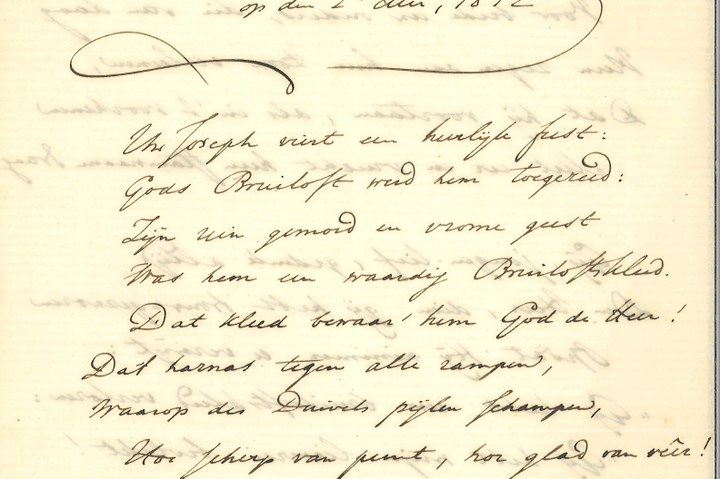 op den 2
Uw Joseph viert een heerlijk feest:
Gods Bruiloft werd hem toegereed:
Zijn rein gemoed en vrome geest
Was hem een waardig Bruiloftskleed.
Dat kleed bewaar' hem God de Heer!
Dat harnas tegen alle rampen,
Waarop des Duivels pijlen schampen,
Hoe scherp van punt, hoe glad van vêer!